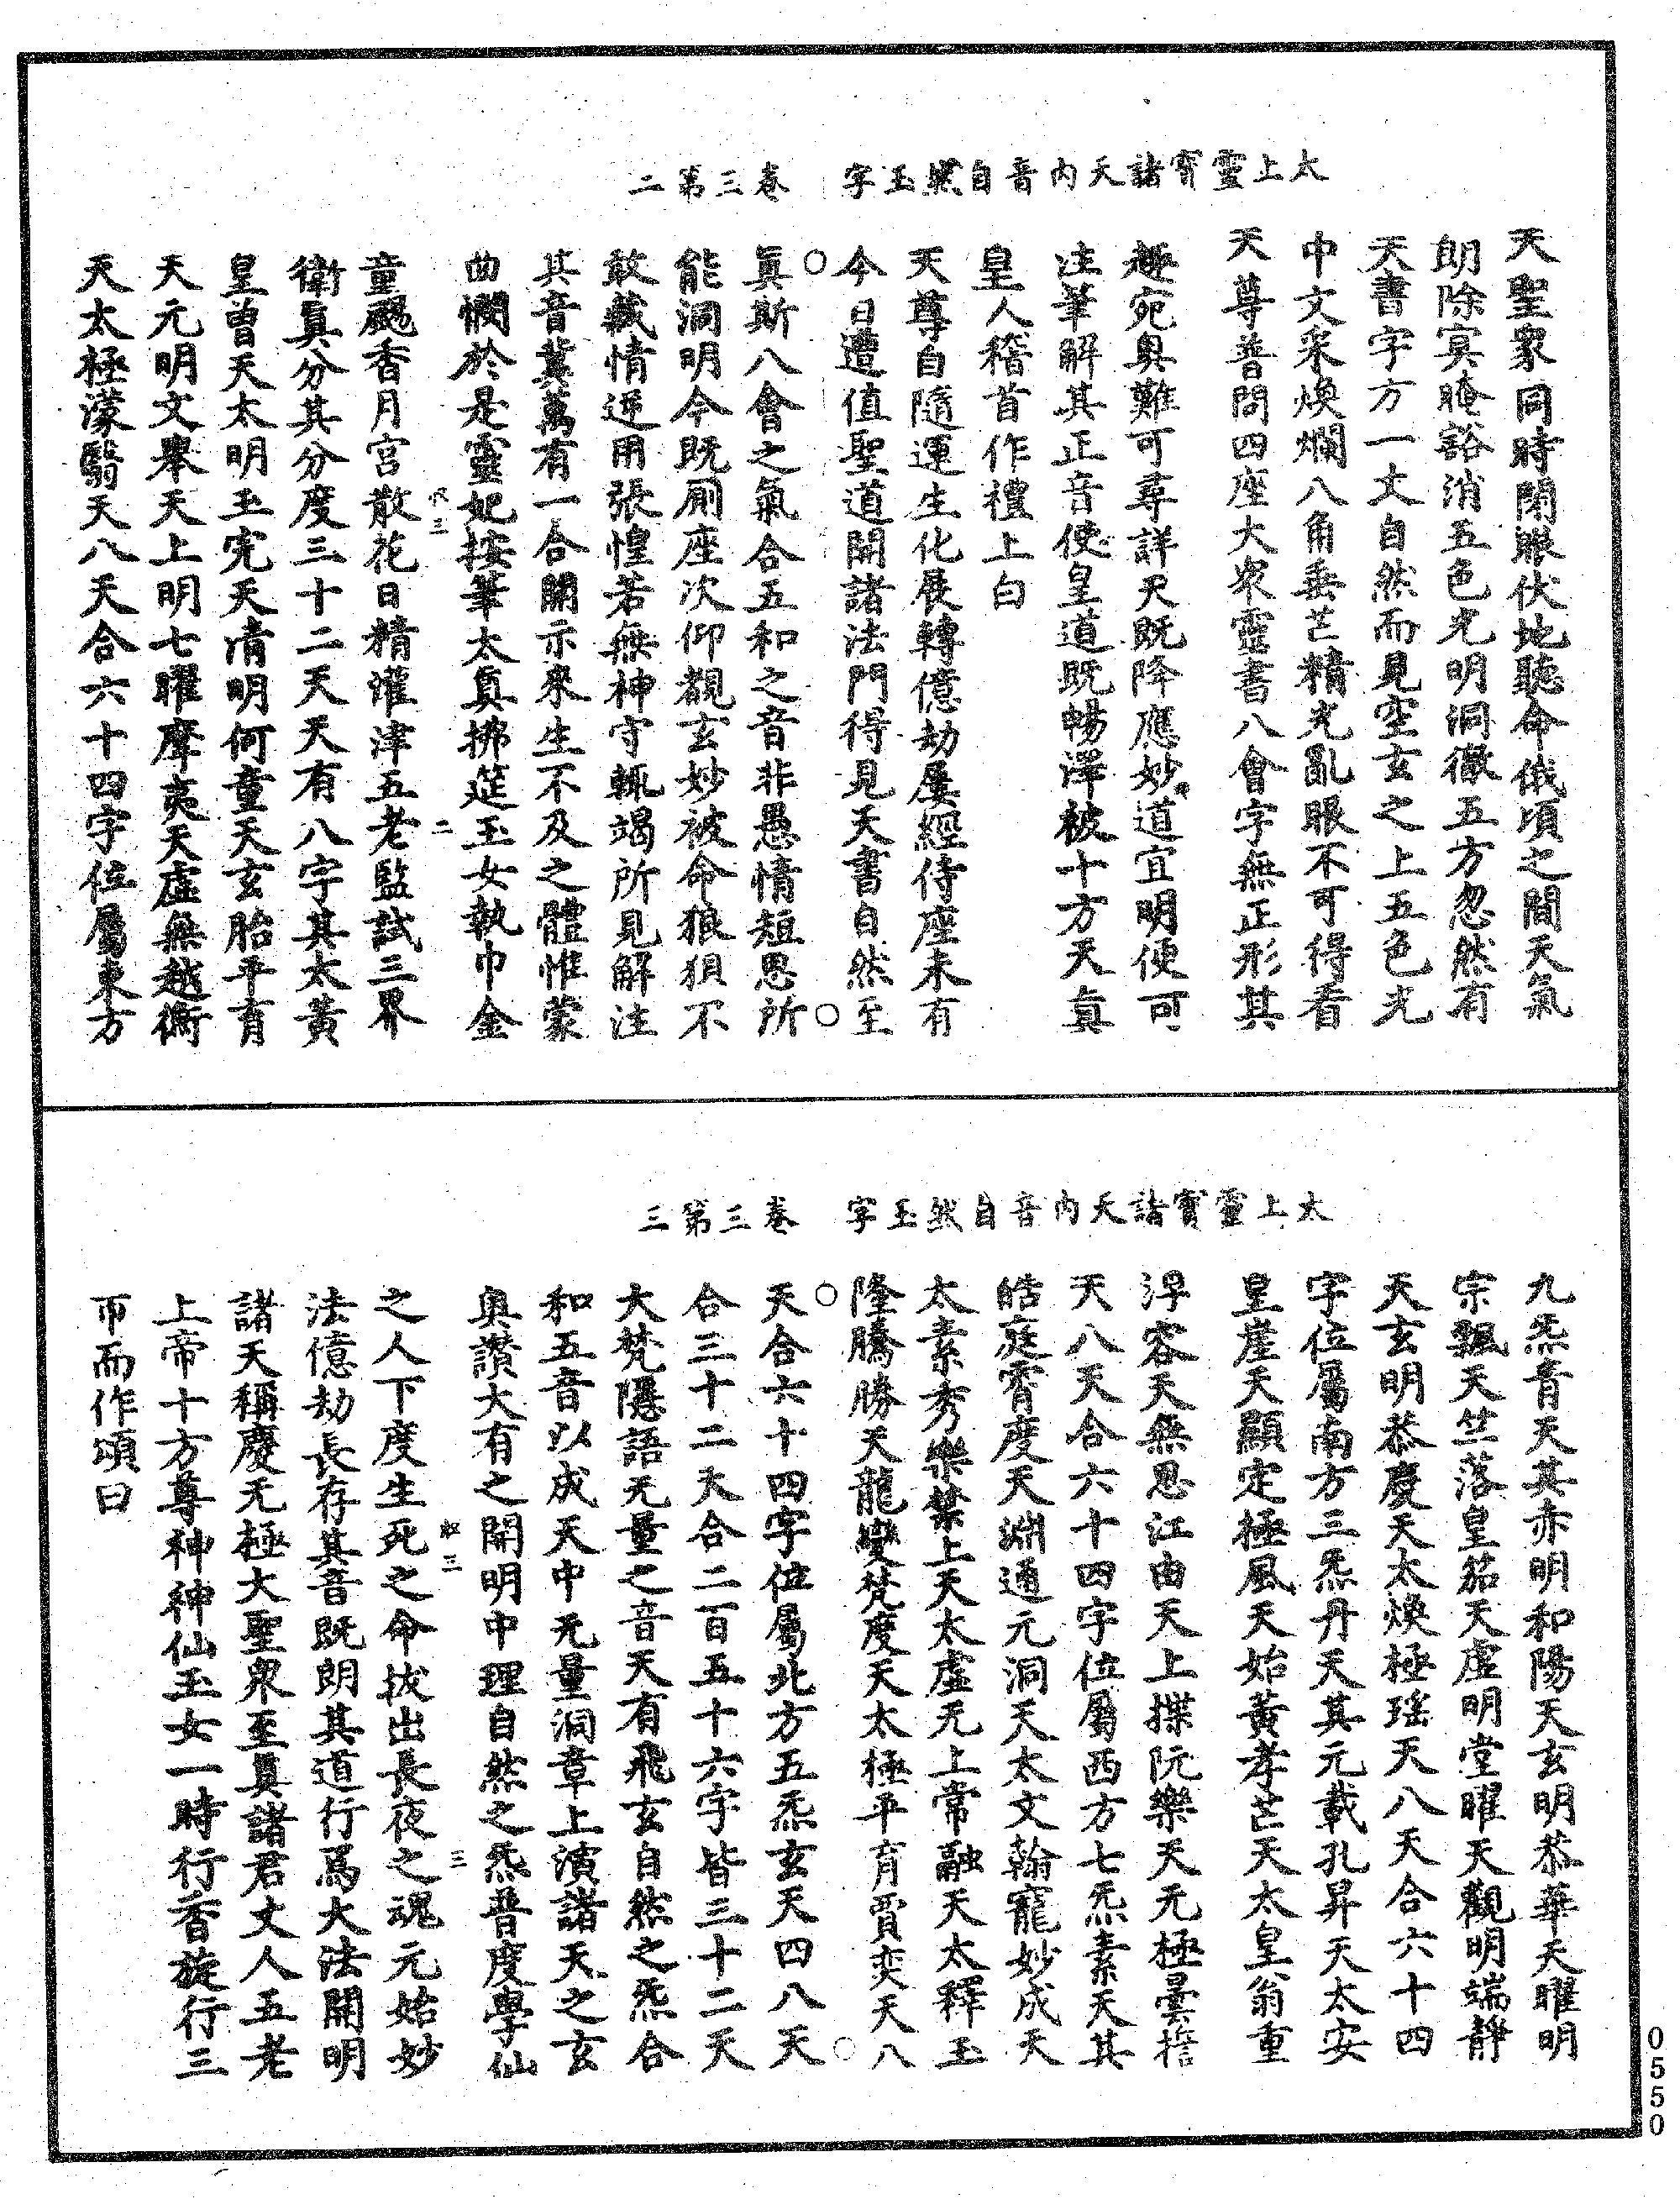 太上靈寶諸天內音自然玉字　卷三第二
天聖眾同時閉眼伏地聽命俄頃之間天氣
朗除冥晻豁消五色光明洞徹五方忽然有
天書字方一丈自然而見空玄之上五色光
中文采煥爛八角垂芒精光亂眼不可得看
天尊普問四座大眾靈書八會字無正形其
趣宛奧難可尋詳天既降應妙道宜明便可
注筆解其正音使皇道既暢澤被十方天真
皇人稽首作禮上白
天尊自隨運生化展轉億劫屢經侍座未有
今日遭值聖道開諸法門得見天書自然至
真斯八會之氣合五和之音非愚情短思所
能洞明今既廁座次仰觀玄妙被命狼狽不
敢藏情逆用張惶若無神守輒竭所見解注
其音冀萬有一合開示來生不及之體惟蒙
曲憫於是靈妃按筆太真拂筵玉女執巾金
童颺香月宮散花日精灌津五老監試三界
衛真分其分度三十二天天有八字其太黃
皇曾天太明玉完天清明何童天玄胎平育
天元明文舉天上明七曜摩夷天虛無越衡
天太極濛翳天八天合六十四字位屬東方
太上靈寶諸天內音自然玉字　卷三第三
九炁青天其赤明和陽天玄明恭華天曜明
宗飄天竺落皇笳天虛明堂曜天觀明端靜
天玄明恭慶天太煥極瑤天八天合六十四
字位屬南方三炁丹天其元載孔昇天太安
皇崖天顯定極風天始黃孝芒天太皇翁重
浮容天無思江由天上揲阮樂天元極曇誓
天八天合六十四字位屬西方七炁素天其
皓庭霄度天淵通元洞天太文翰寵妙成天
太素秀樂禁上天太虛无上常融天太釋玉
隆騰勝天龍變梵度天太極平育賈奕天八
天合六十四字位屬北方五炁玄天四八天
合三十二天合二百五十六字皆三十二天
大梵隱語无量之音天有飛玄自然之炁合
和五音以成天中无量洞章上演諸天之玄
奧讚大有之開明中理自然之炁普度學仙
之人下度生死之命拔出長夜之魂元始妙
法億劫長存其音既朗其道行焉大法開明
諸天稱慶无極大聖眾至真諸君丈人五老
上帝十方尊神神仙玉女一時行香旋行三
帀而作頌曰
0550